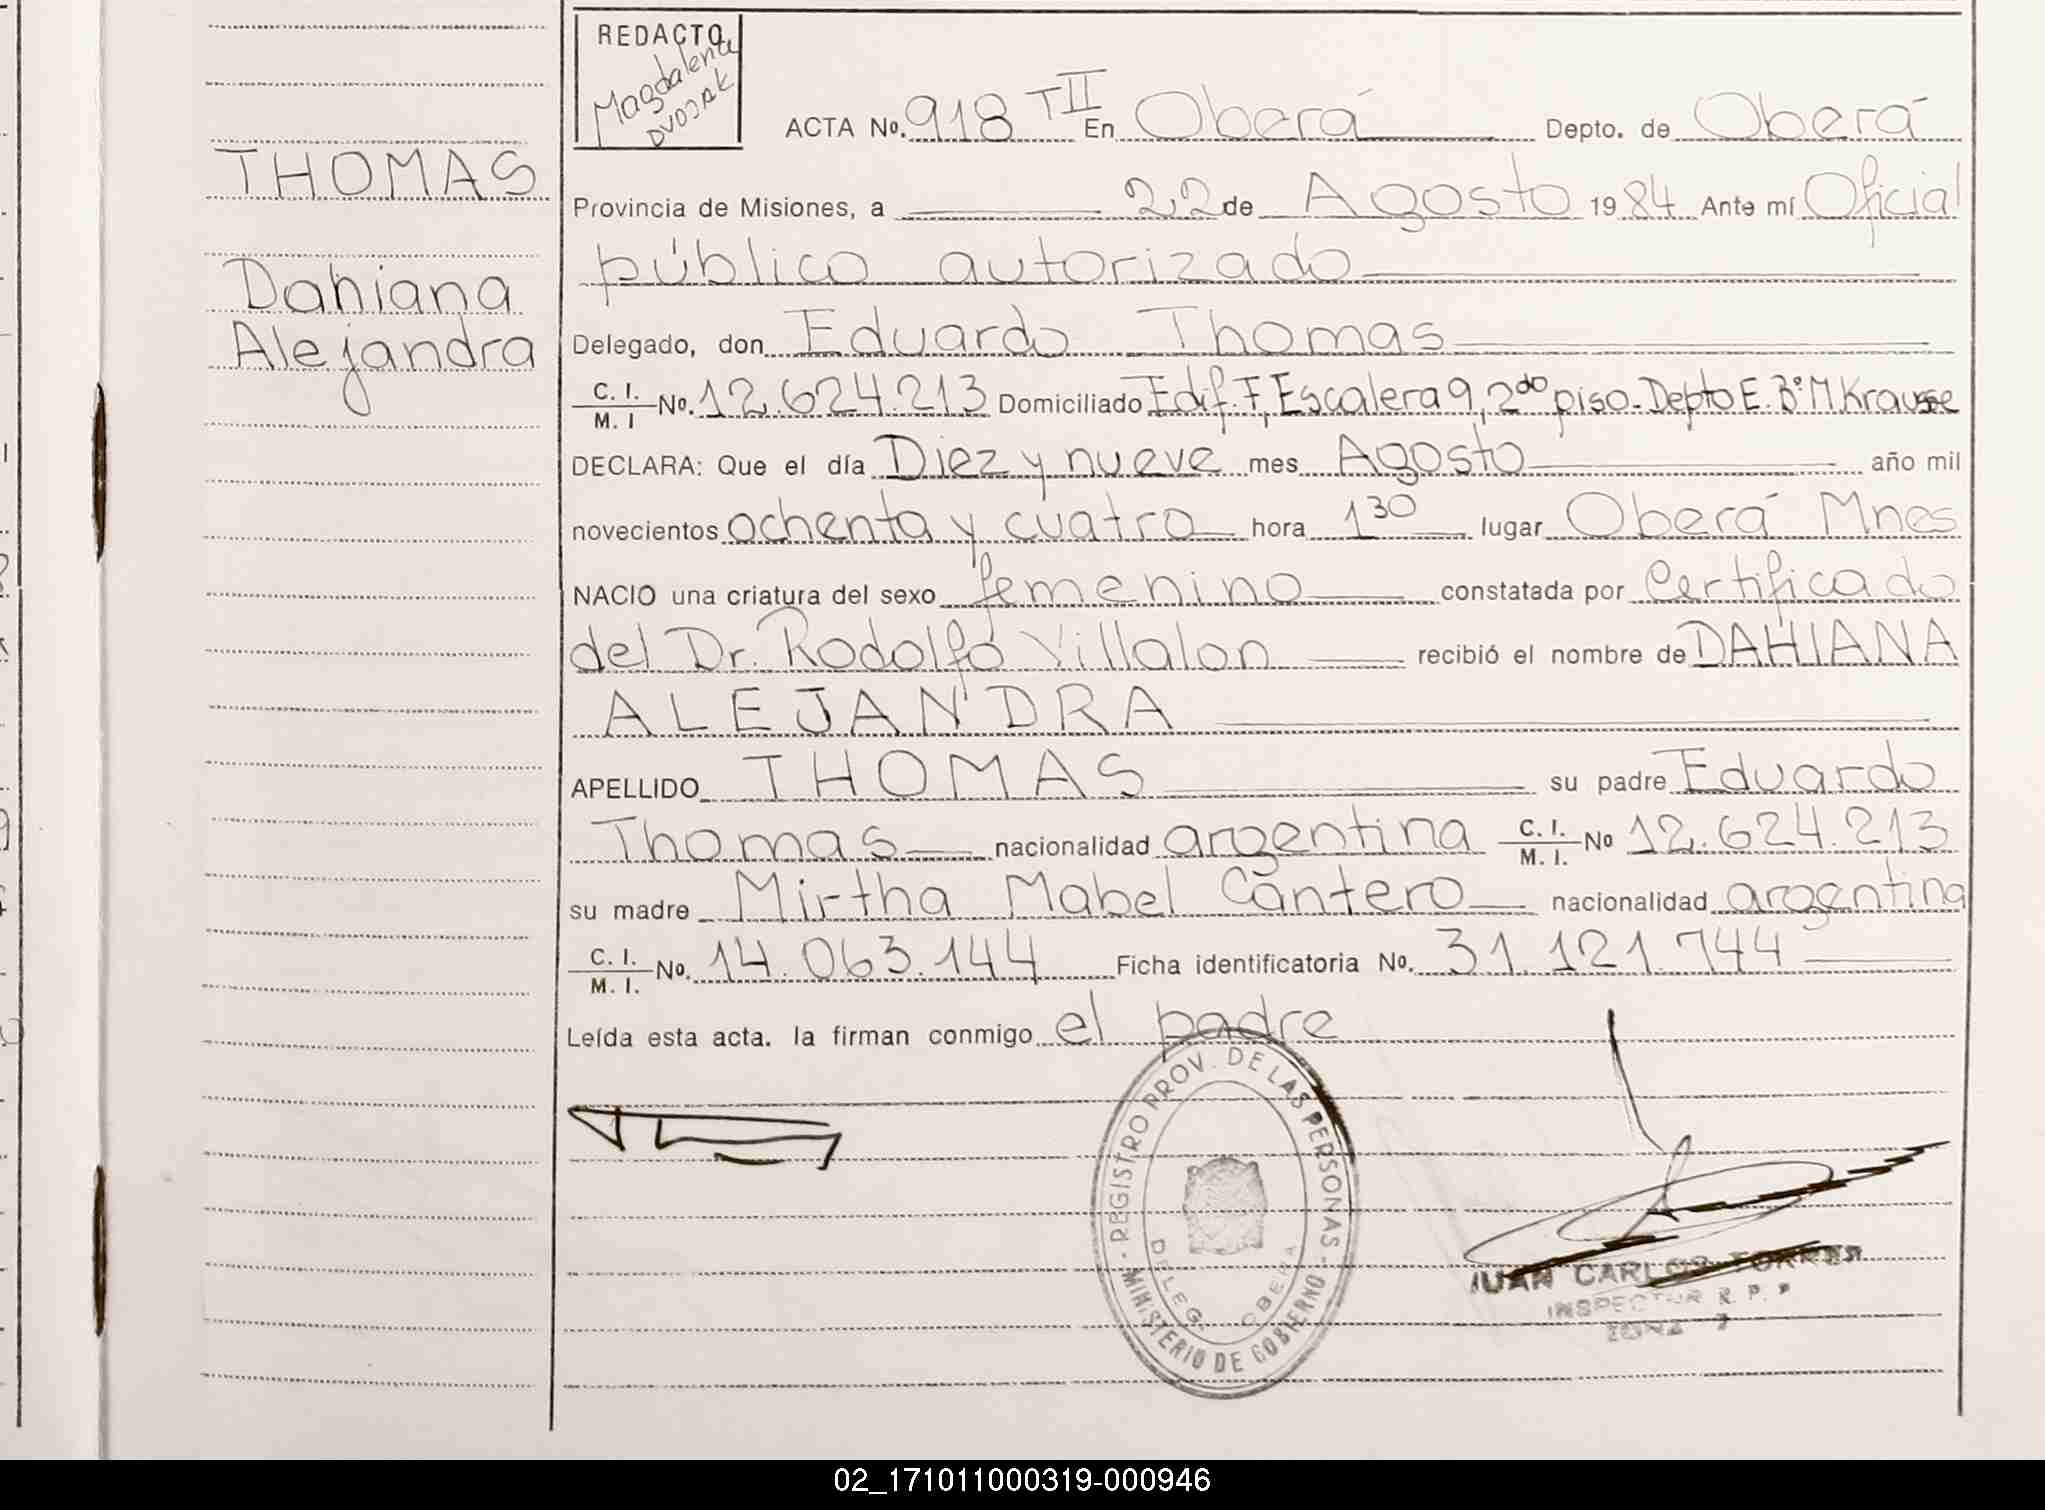 REDACTO
Magdalena
DVOJAK
ACTA No. 918 TII En Oberá Depto. de Oberá
THOMAS
Provincia de Misiones, a 22 de Agosto 1984 Ante mí Oficial
público autorizado
Dahiana
Alejandra
Delegado, don Eduardo Thomas
C. I. M. I No. 12.624.213 Domiciliado Edif. F, Escalera 9, 2do piso. Depto E. Bº M. Krause
DECLARA: Que el día Diez y nueve mes Agosto año mil
novecientos ochenta y cuatro hora 1 30 lugar Oberá Mnes
NACIO una criatura del sexo femenino constatada por Certificado
del Dr. Rodolfo Villalon recibió el nombre de DAHIANA
ALEJANDRA
APELLIDO THOMAS su padre Eduardo
Thomas nacionalidad argentina C. I. M. I. No 12.624.213
su madre Mirtha Mabel Cantero nacionalidad argentina
C. I. M. I. No. 14.063.144 Ficha identificatoria No. 31.121.744
Leída esta acta. la firman conmigo el padre
REGISTRO PROV. DE LAS PERSONAS
MINISTERIO DE GOBIERNO
DELEG. OBERA
JUAN CARLOS TORRES
INSPECTOR R. P. P
ZONA 7
02_171011000319-000946